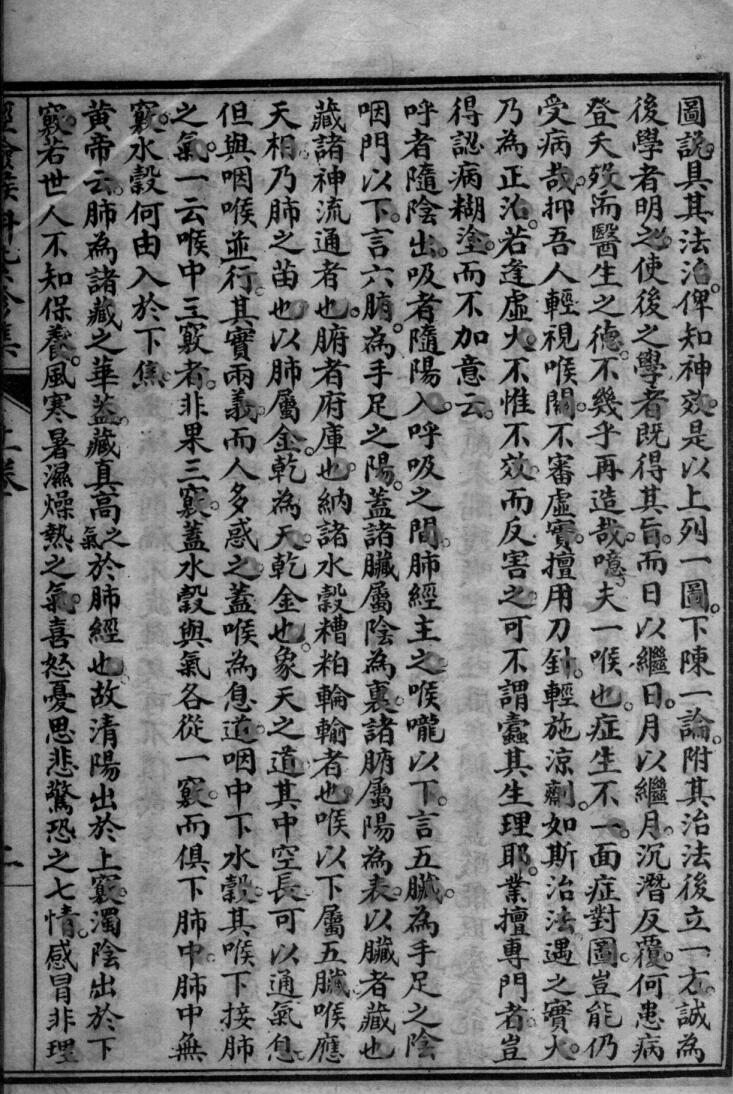 圖說具其法治俾知神效是以上列一圖下陳一論附其治法後立一方誠為
後學者明之使後之學者既得其旨而日以繼日月以繼月沉潛反覆何患病
登夭殀而醫生之德不幾乎再造哉噫夫一喉也症生不一面症對圖豈能仍
受病哉抑吾人輕視喉關不審虛實擅用刀針輕施涼劑如斯治法遇之實火
乃為正治若逢虛火不惟不效而反害之可不謂蠹其生理耶業擅專門者豈
得認病糊塗而不加意云
呼者隨陰出吸者隨陽入呼吸之間肺經主之喉嚨以下言五臟為手足之陰
咽門以下言六腑為手足之陽蓋諸臟屬陰為裏諸腑屬陽為表以臟者藏也
藏諸神流通者也腑者府庫也納諸水穀糟粕輪輸者也喉以下屬五臟喉應
天相乃肺之苗也以肺屬金乾為天乾金也象天之道其中空長可以通氣息
但與咽喉並行其實兩義而人多惑之蓋喉為息道咽中下水穀其喉下接肺
之氣一云喉中三竅者非果三竅蓋水穀與氣各從一竅而俱下肺中肺中無
竅水穀何由入於下焦
黃帝云肺為諸藏之華蓋藏真高之氣於肺經也故清陽出於上竅濁陰出於下
竅若世人不知保養風寒暑濕燥熱之氣喜怒憂思悲驚恐之七情感冒非理
上卷
二